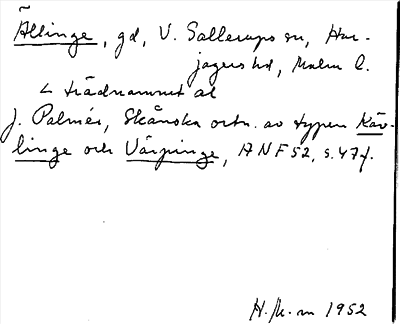 Ällinge, gd, V. Sallerups sn, Har-
jagers hd, Malm l.
< trädnamnet al
J. Palmér, Skånska ortn. av typen Käv-
linge och Värpinge, ANF 52, s. 47f.
H. 1952